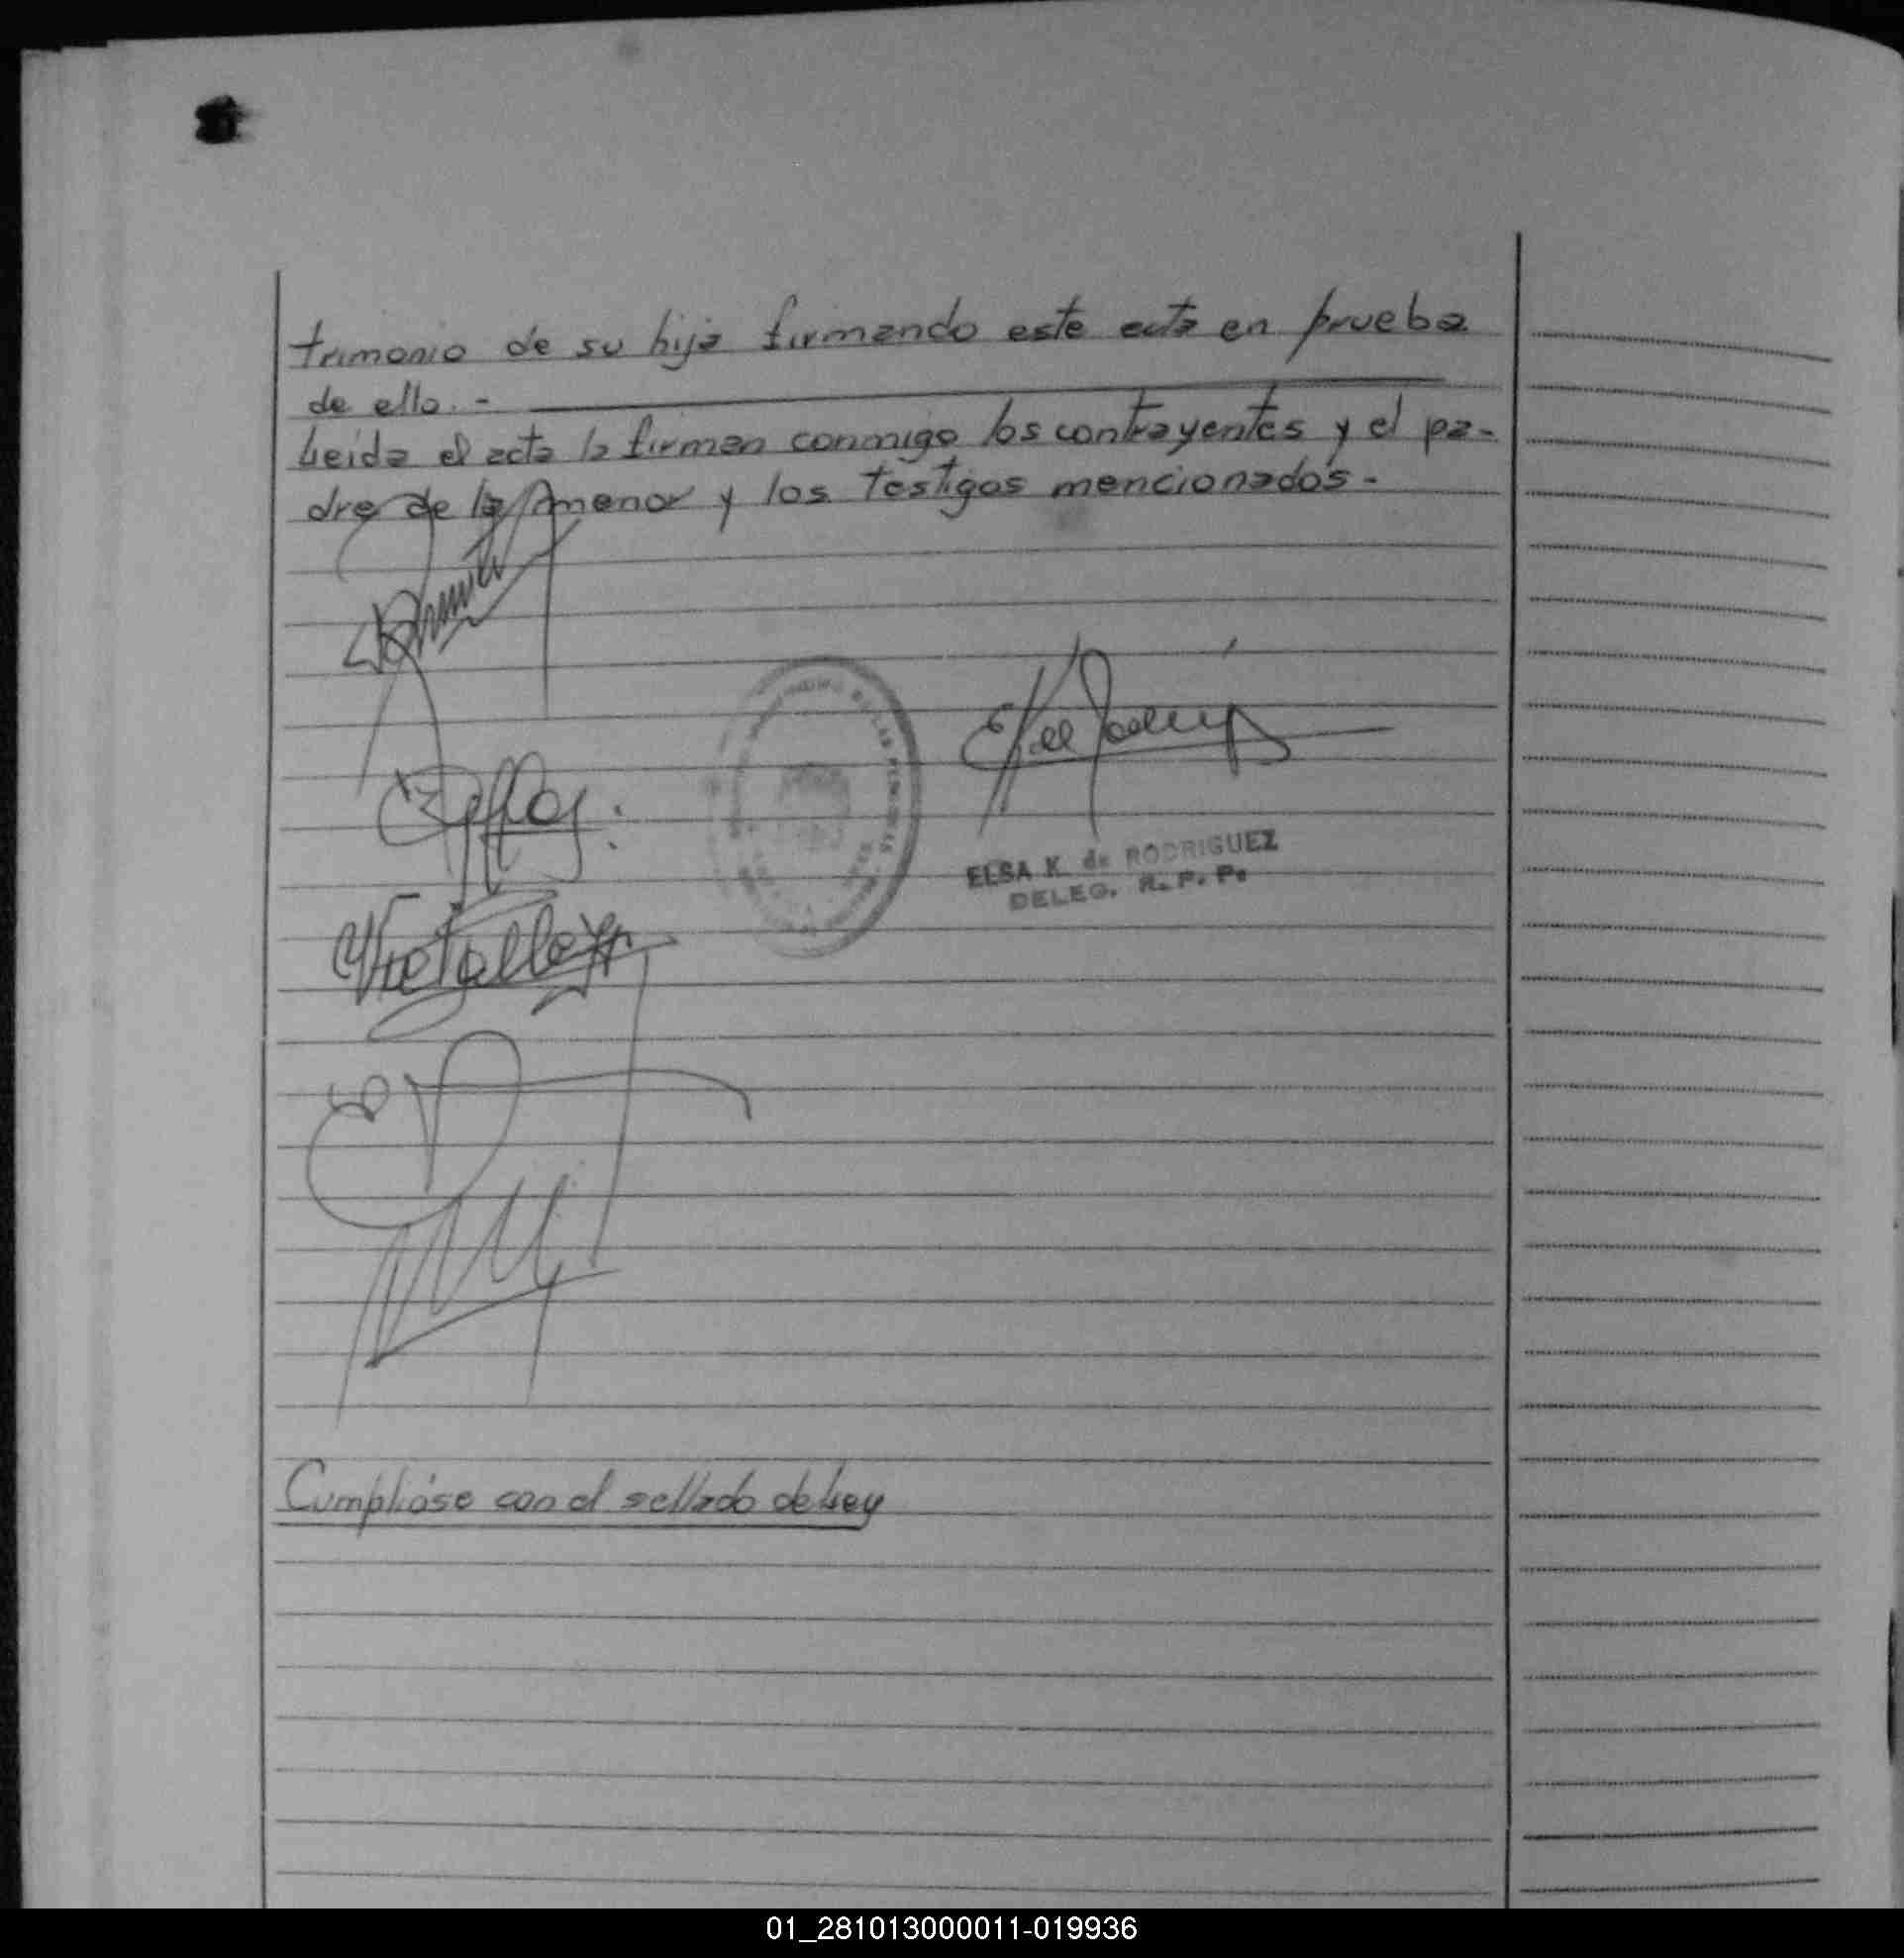 trimonio de su hija firmando este acta en prueba
de ello.-
Leida el acta la firman conmigo los contrayentes y el pa-
dre de la menor y los testigos mencionados-
ELSA K. de RODRIGUEZ
DELEG. R. P. P.
Cumplióse con el sellado de Ley
01_281013000011-019936